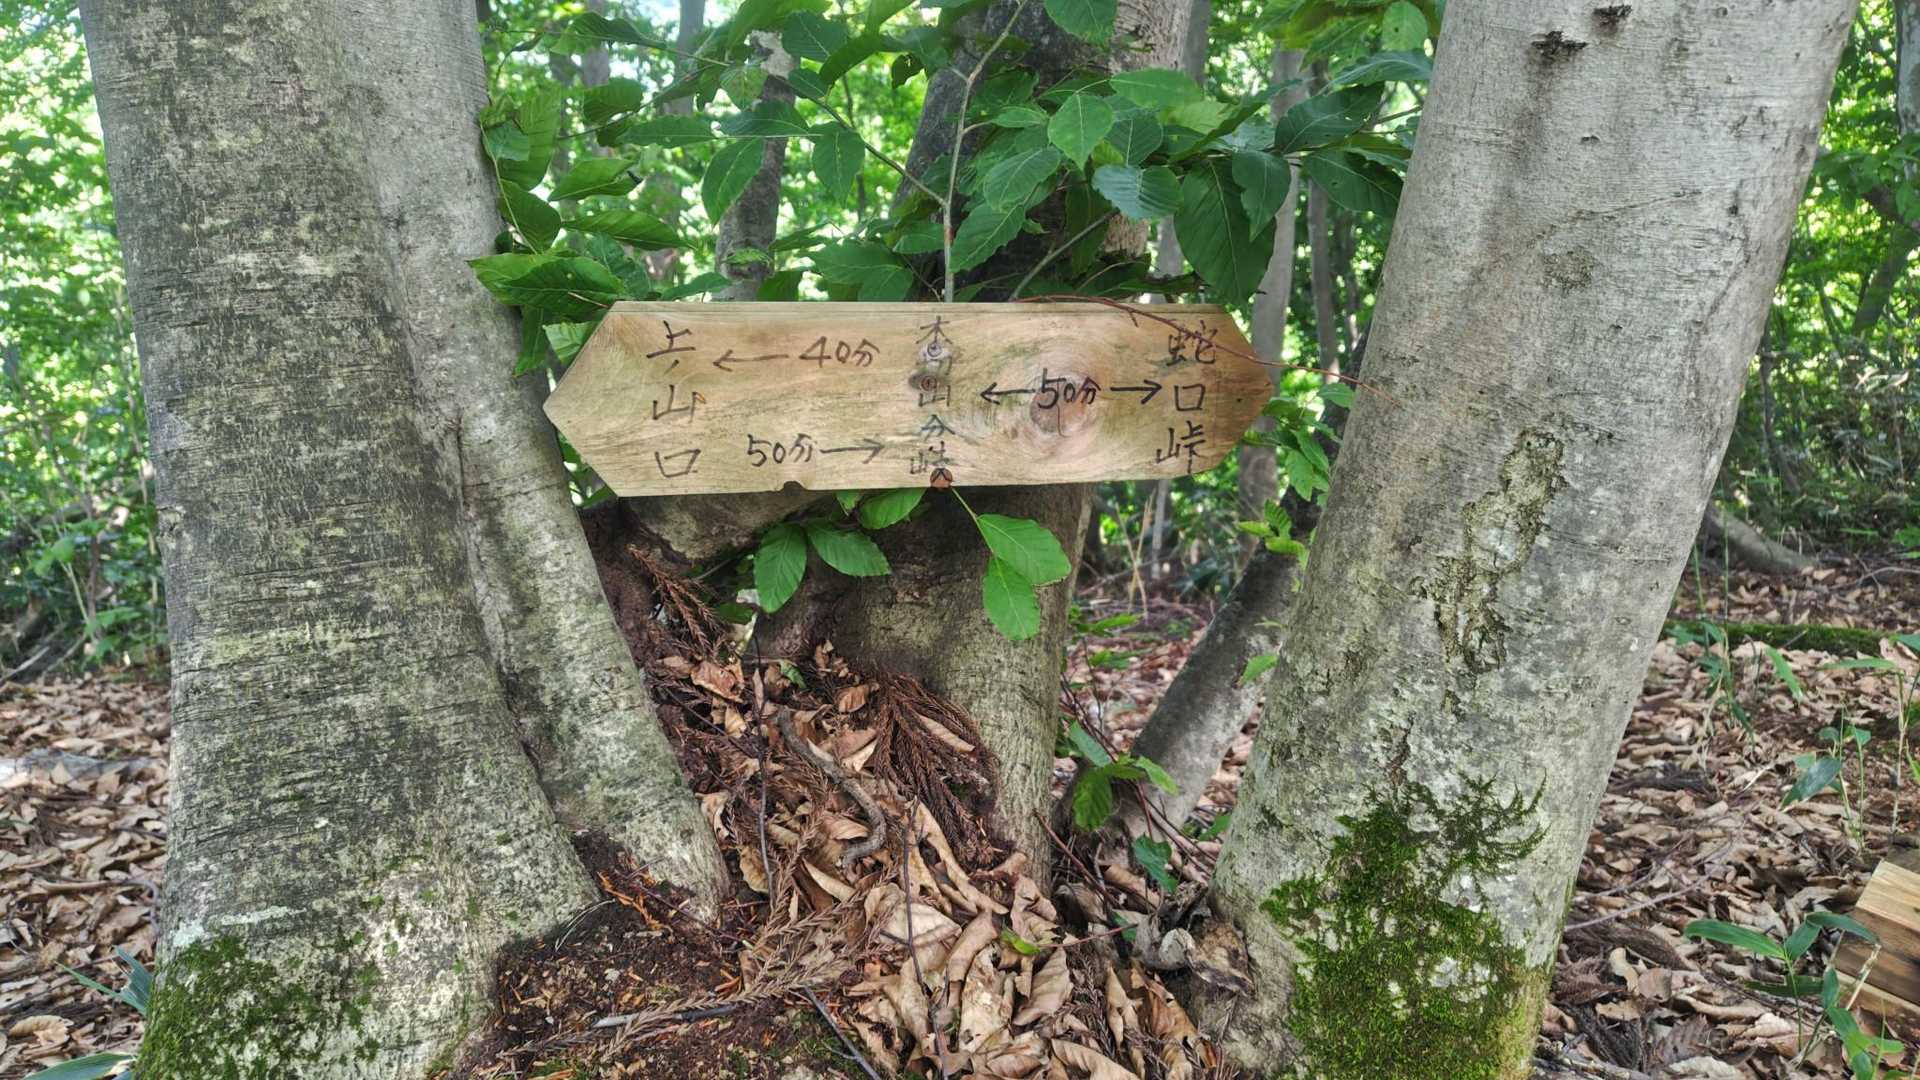 上ノ山口
←40分
50分→
山分岐
←50分→
蛇口峠